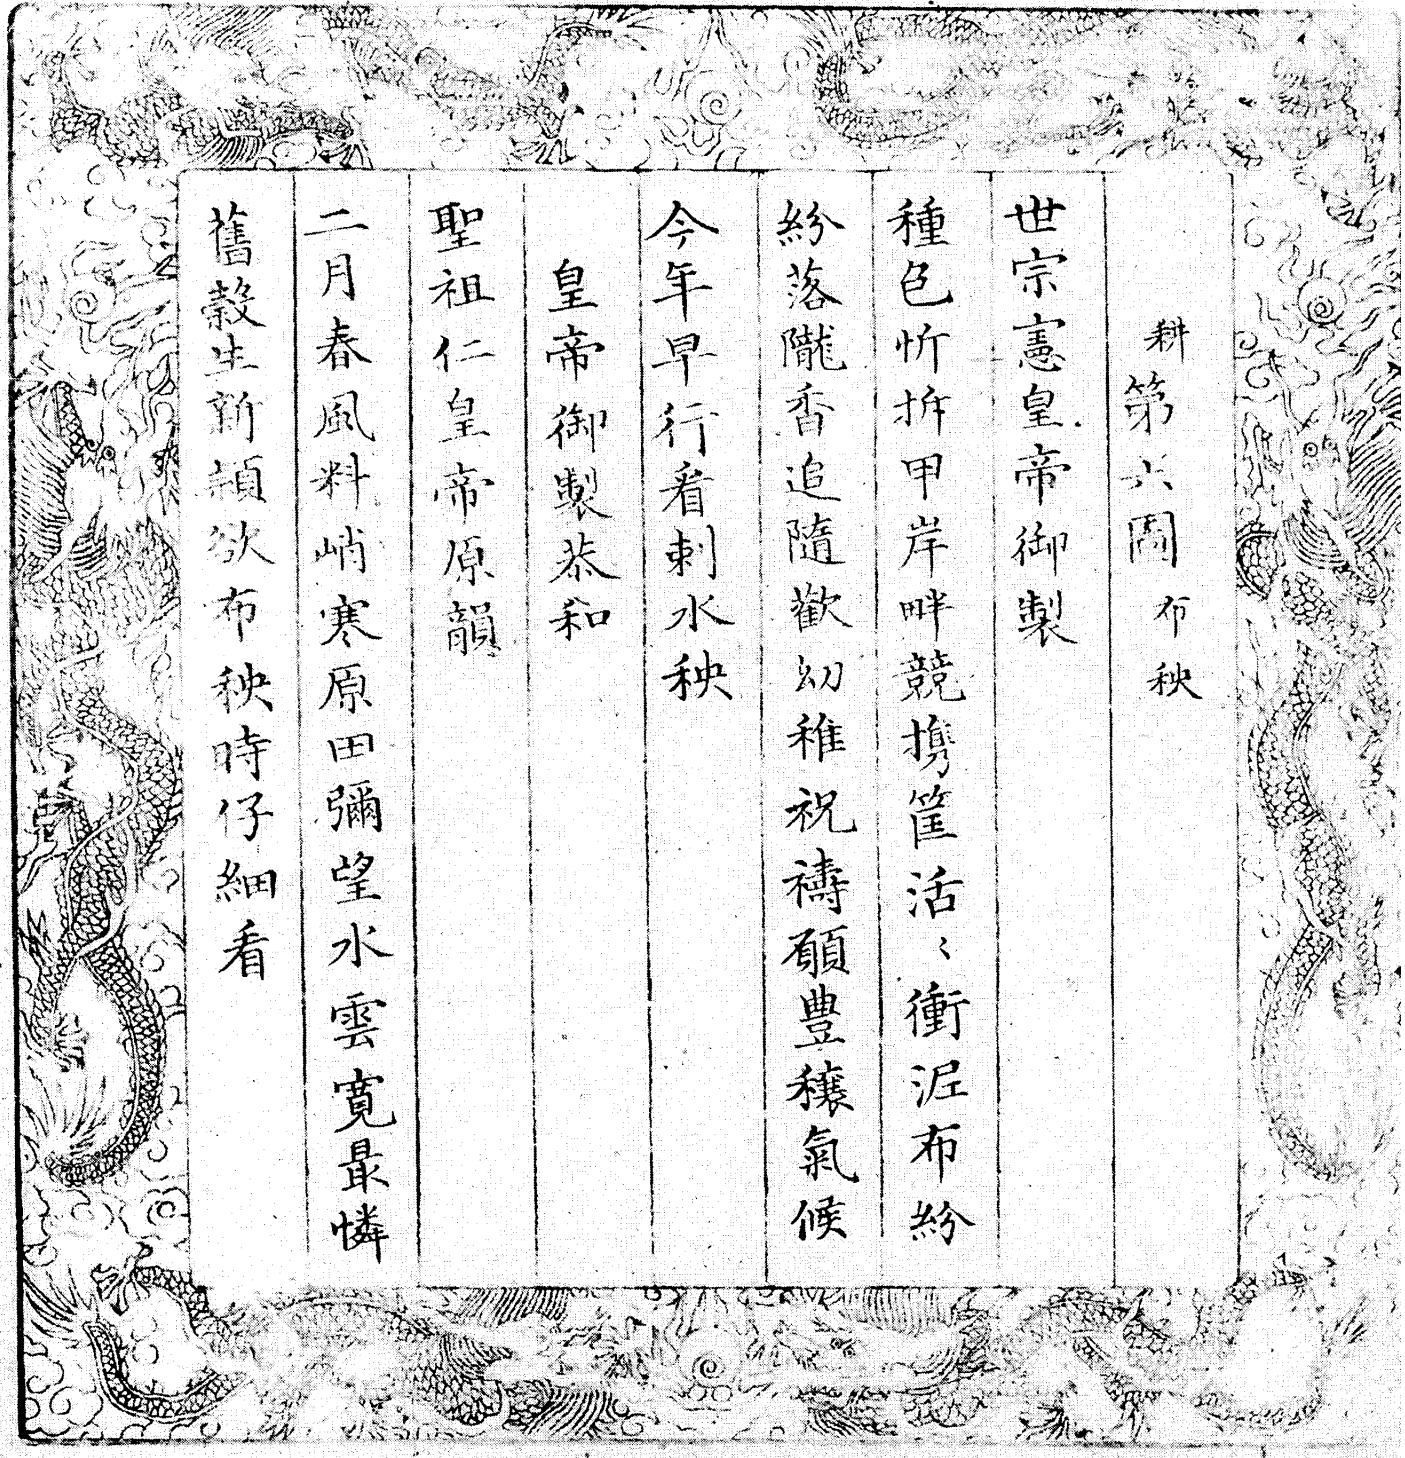 耕第六圖布秧
世宗憲皇帝御製
種色忻拆甲岸畔競攜筐活〻衝泥布紛
紛落隴香追隨歡幼稚祝禱願豊穰氣候
今年早行看刺水秧
皇帝御製恭和
聖祖仁皇帝原韻
二月春風料峭寒原田彌望水雲寬最憐
舊榖生新穎欲布秧時仔細看